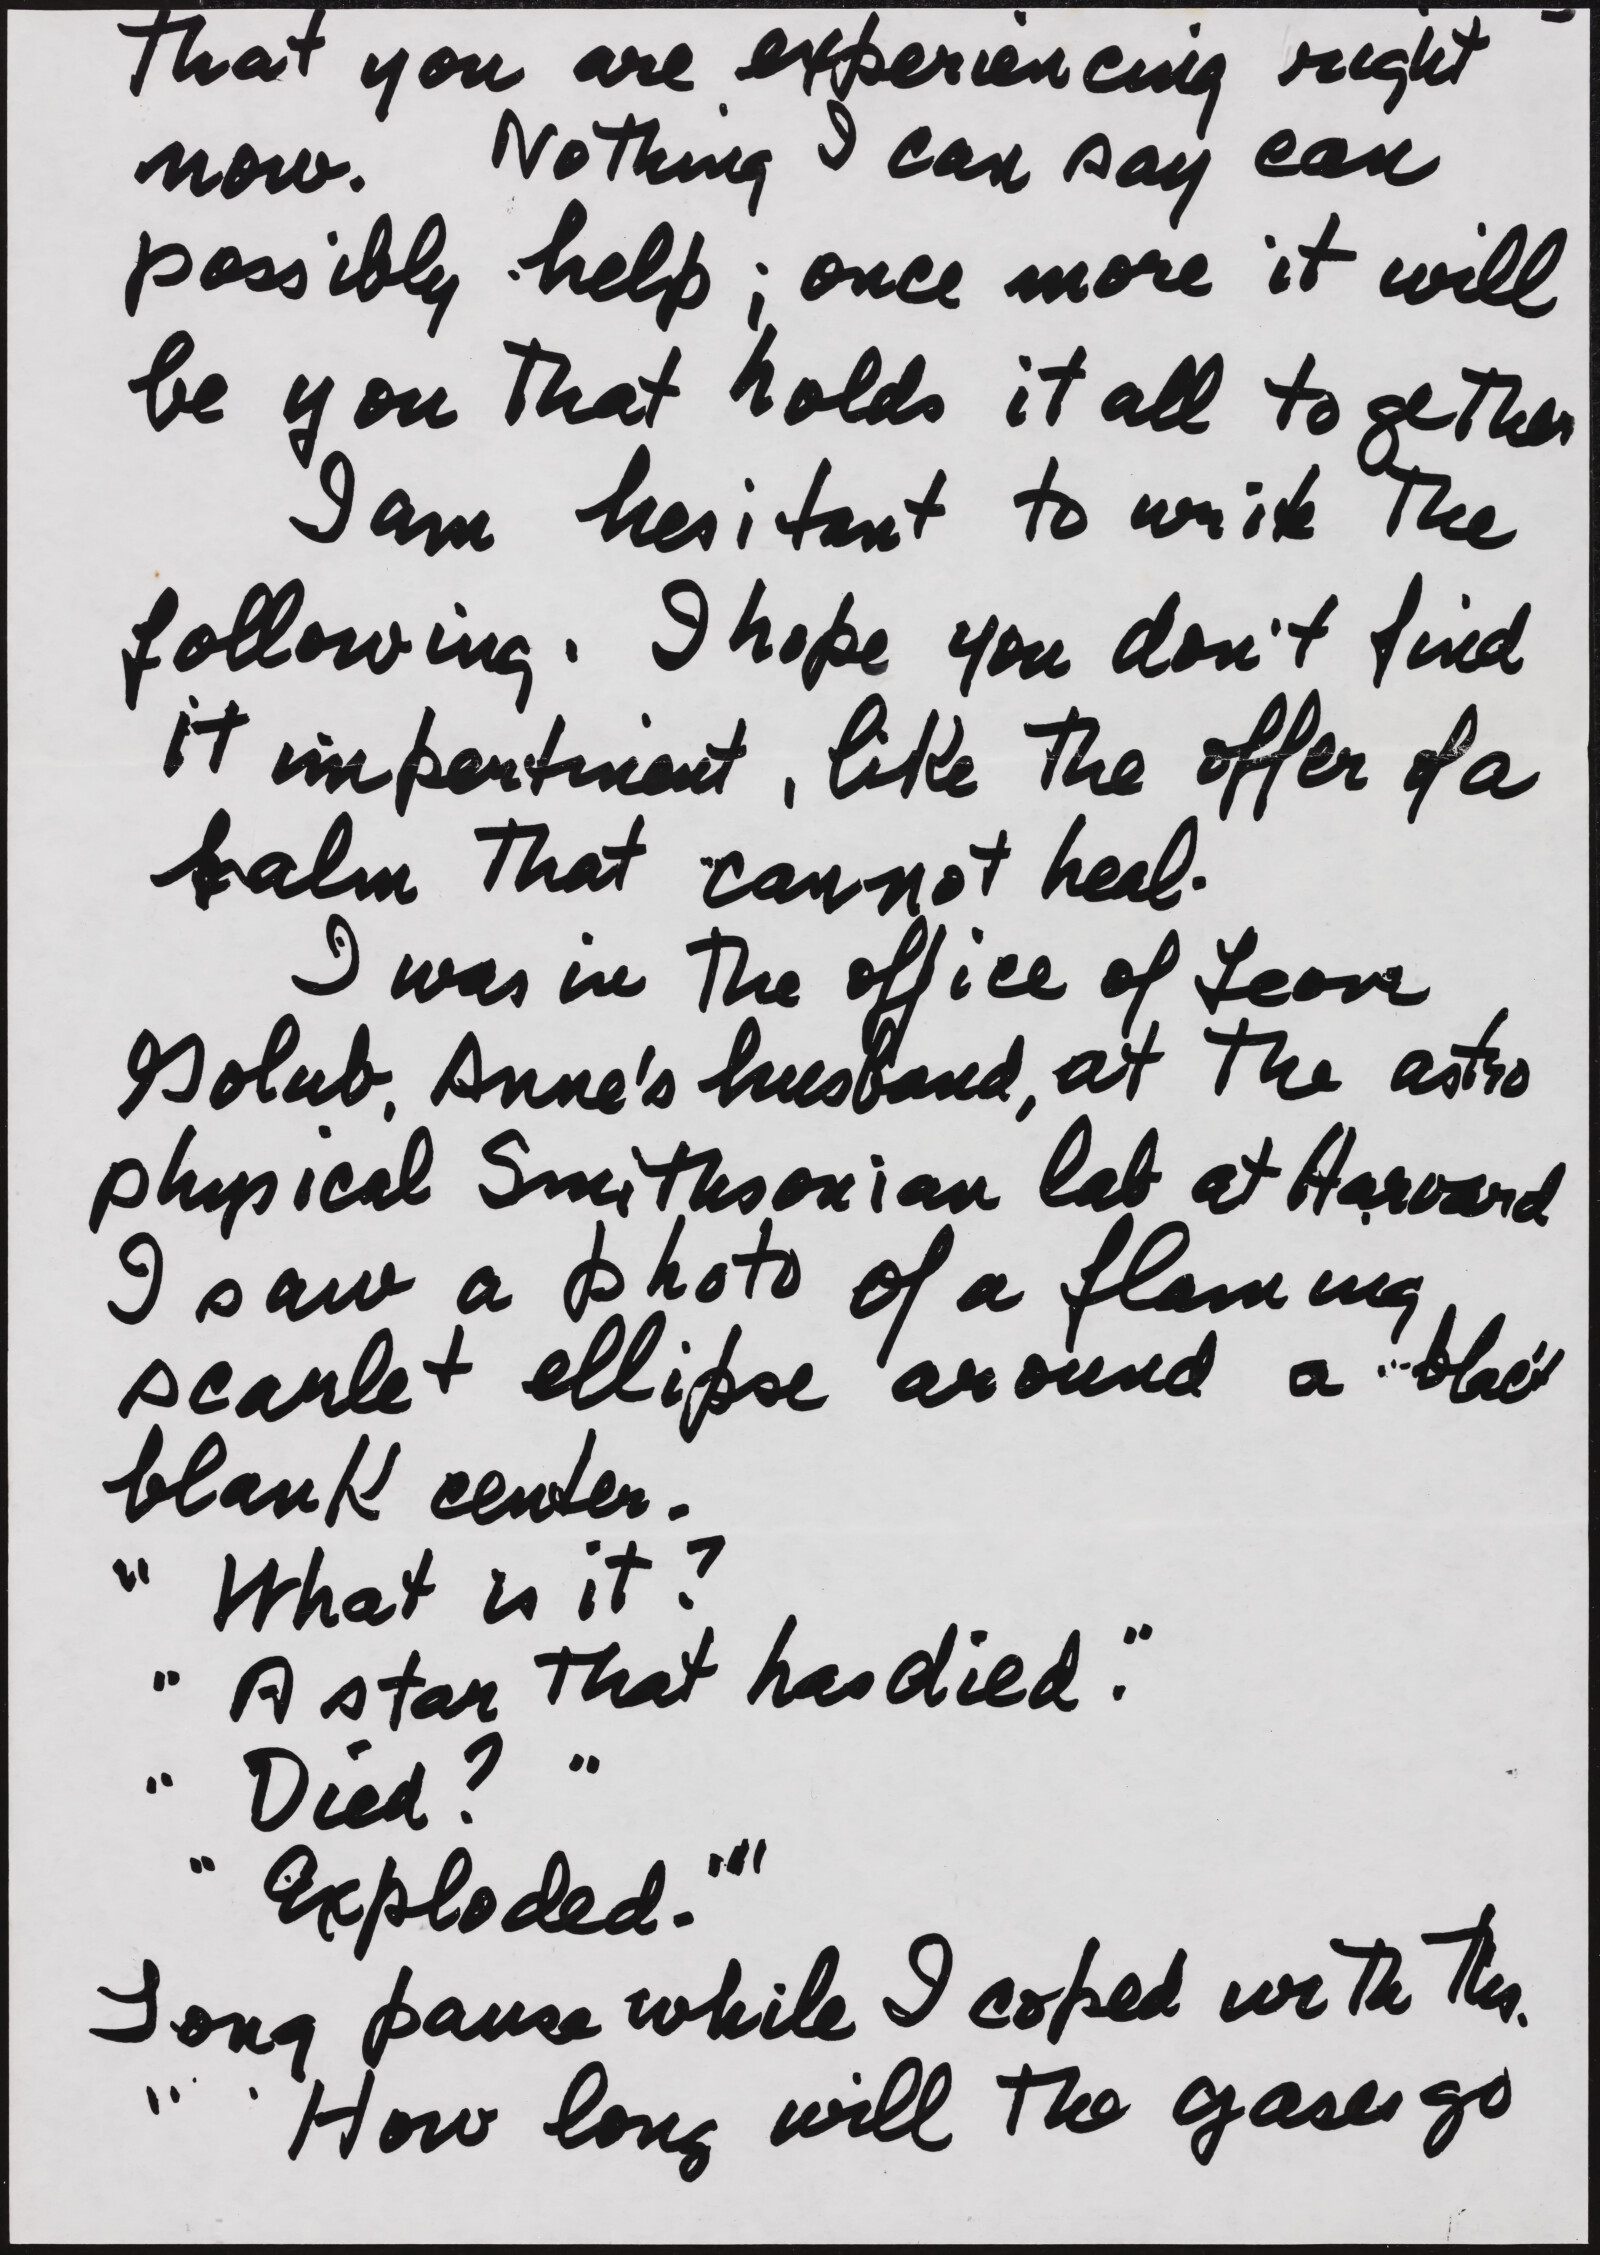 that you are experiencing right
now. Nothing I can say can
possibly help; once more it will
be you that holds it all together
I am hesitant to write the
following. I hope you don't find
it impertinent, like the offer of a
balm that cannot heal.
I was in the office of Leon
Golub, Anne's husband, at the astro
physical Smithsonian lab at Harvard
I saw a photo of a flaming
scarlet ellipse around a black
blank center.
" What is it?
" A star that has died."
" Died? "
" Exploded."
Long pause while I coped with this.
" How long will the gases go